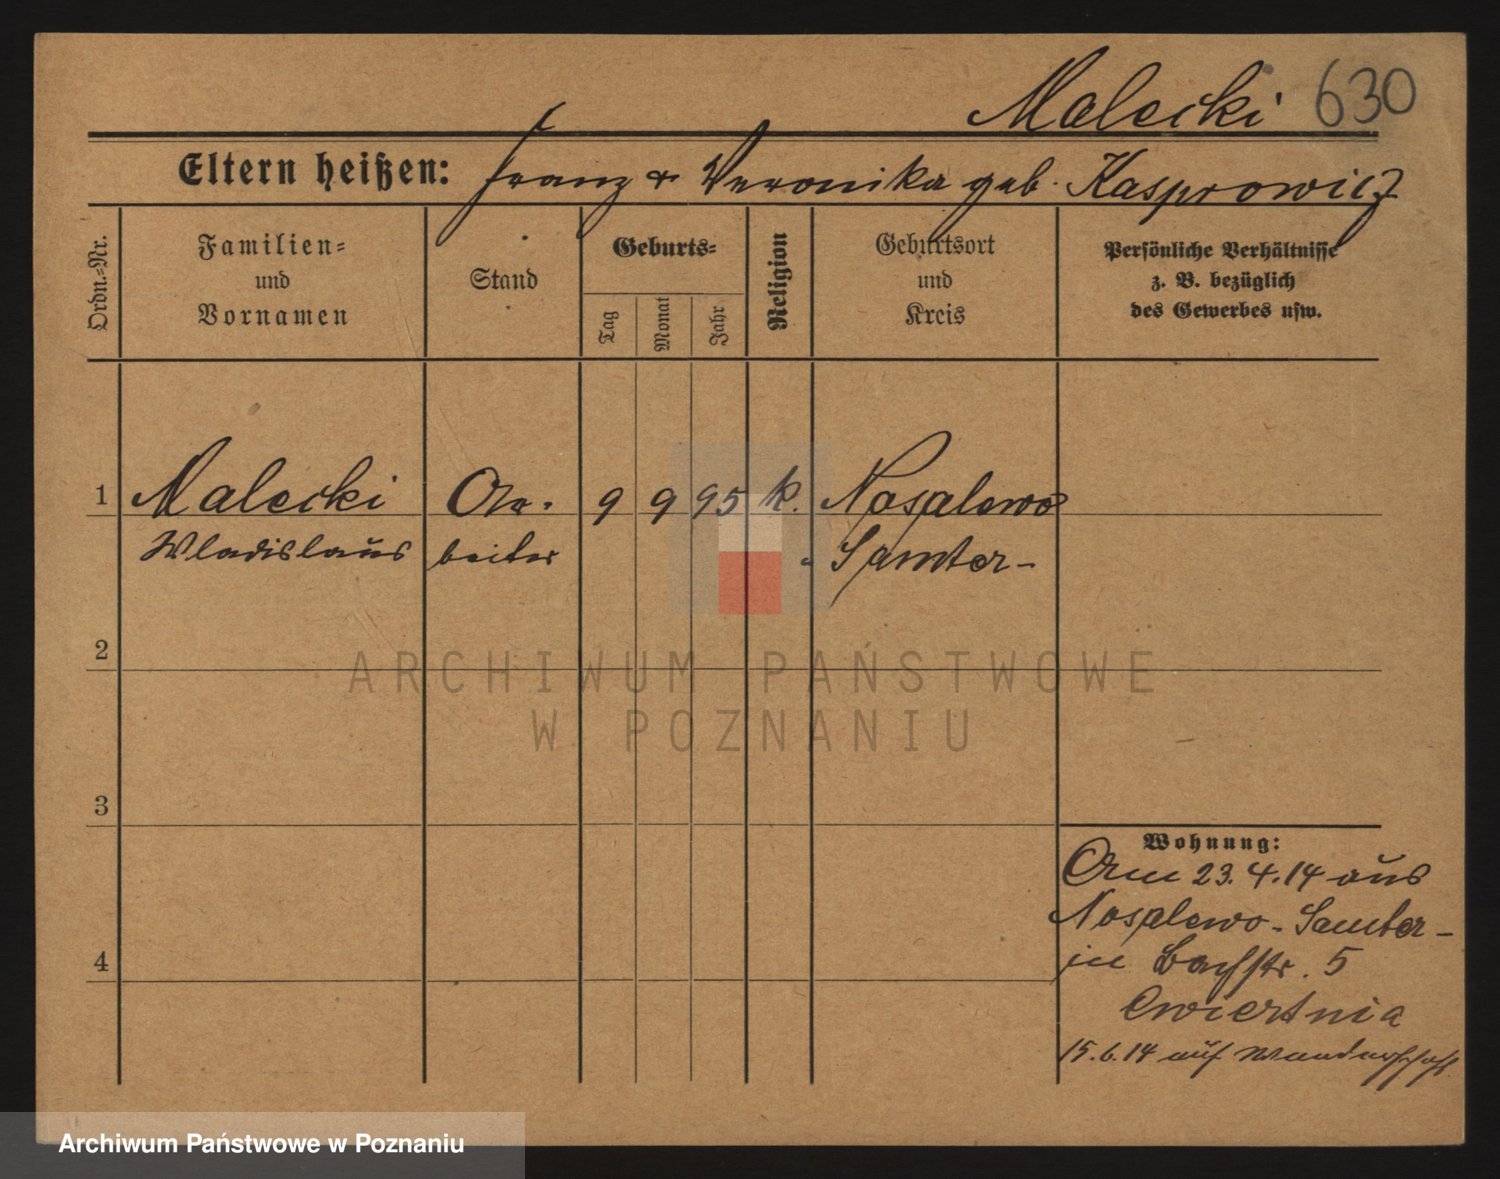 Malecki 630
Eltern heißen: Franz & Veronika geb. Kasprowicz
Ordn.-Nr.
Familien-
und
Vornamen
Stand
Geburts-
Tag
Monat
Jahr
Religion
Geburtsort
und
Kreis
Persönliche Verhältnisse
z. B. bezüglich
des Gewerbes usw.
1 Malecki Ar- 9 9 95 k. Nosalewo
Wladislaus beiter Samter-
2
ARCHIWUM PAŃSTWOWE
W POZNANIU
3
Wohnung:
Am 23.4.14 aus
Nosalewo-Samter-
in Bachstr. 5
4
Cwiertnia
15.6.14 auf Wanderschaft
Archiwum Państwowe w Poznaniu